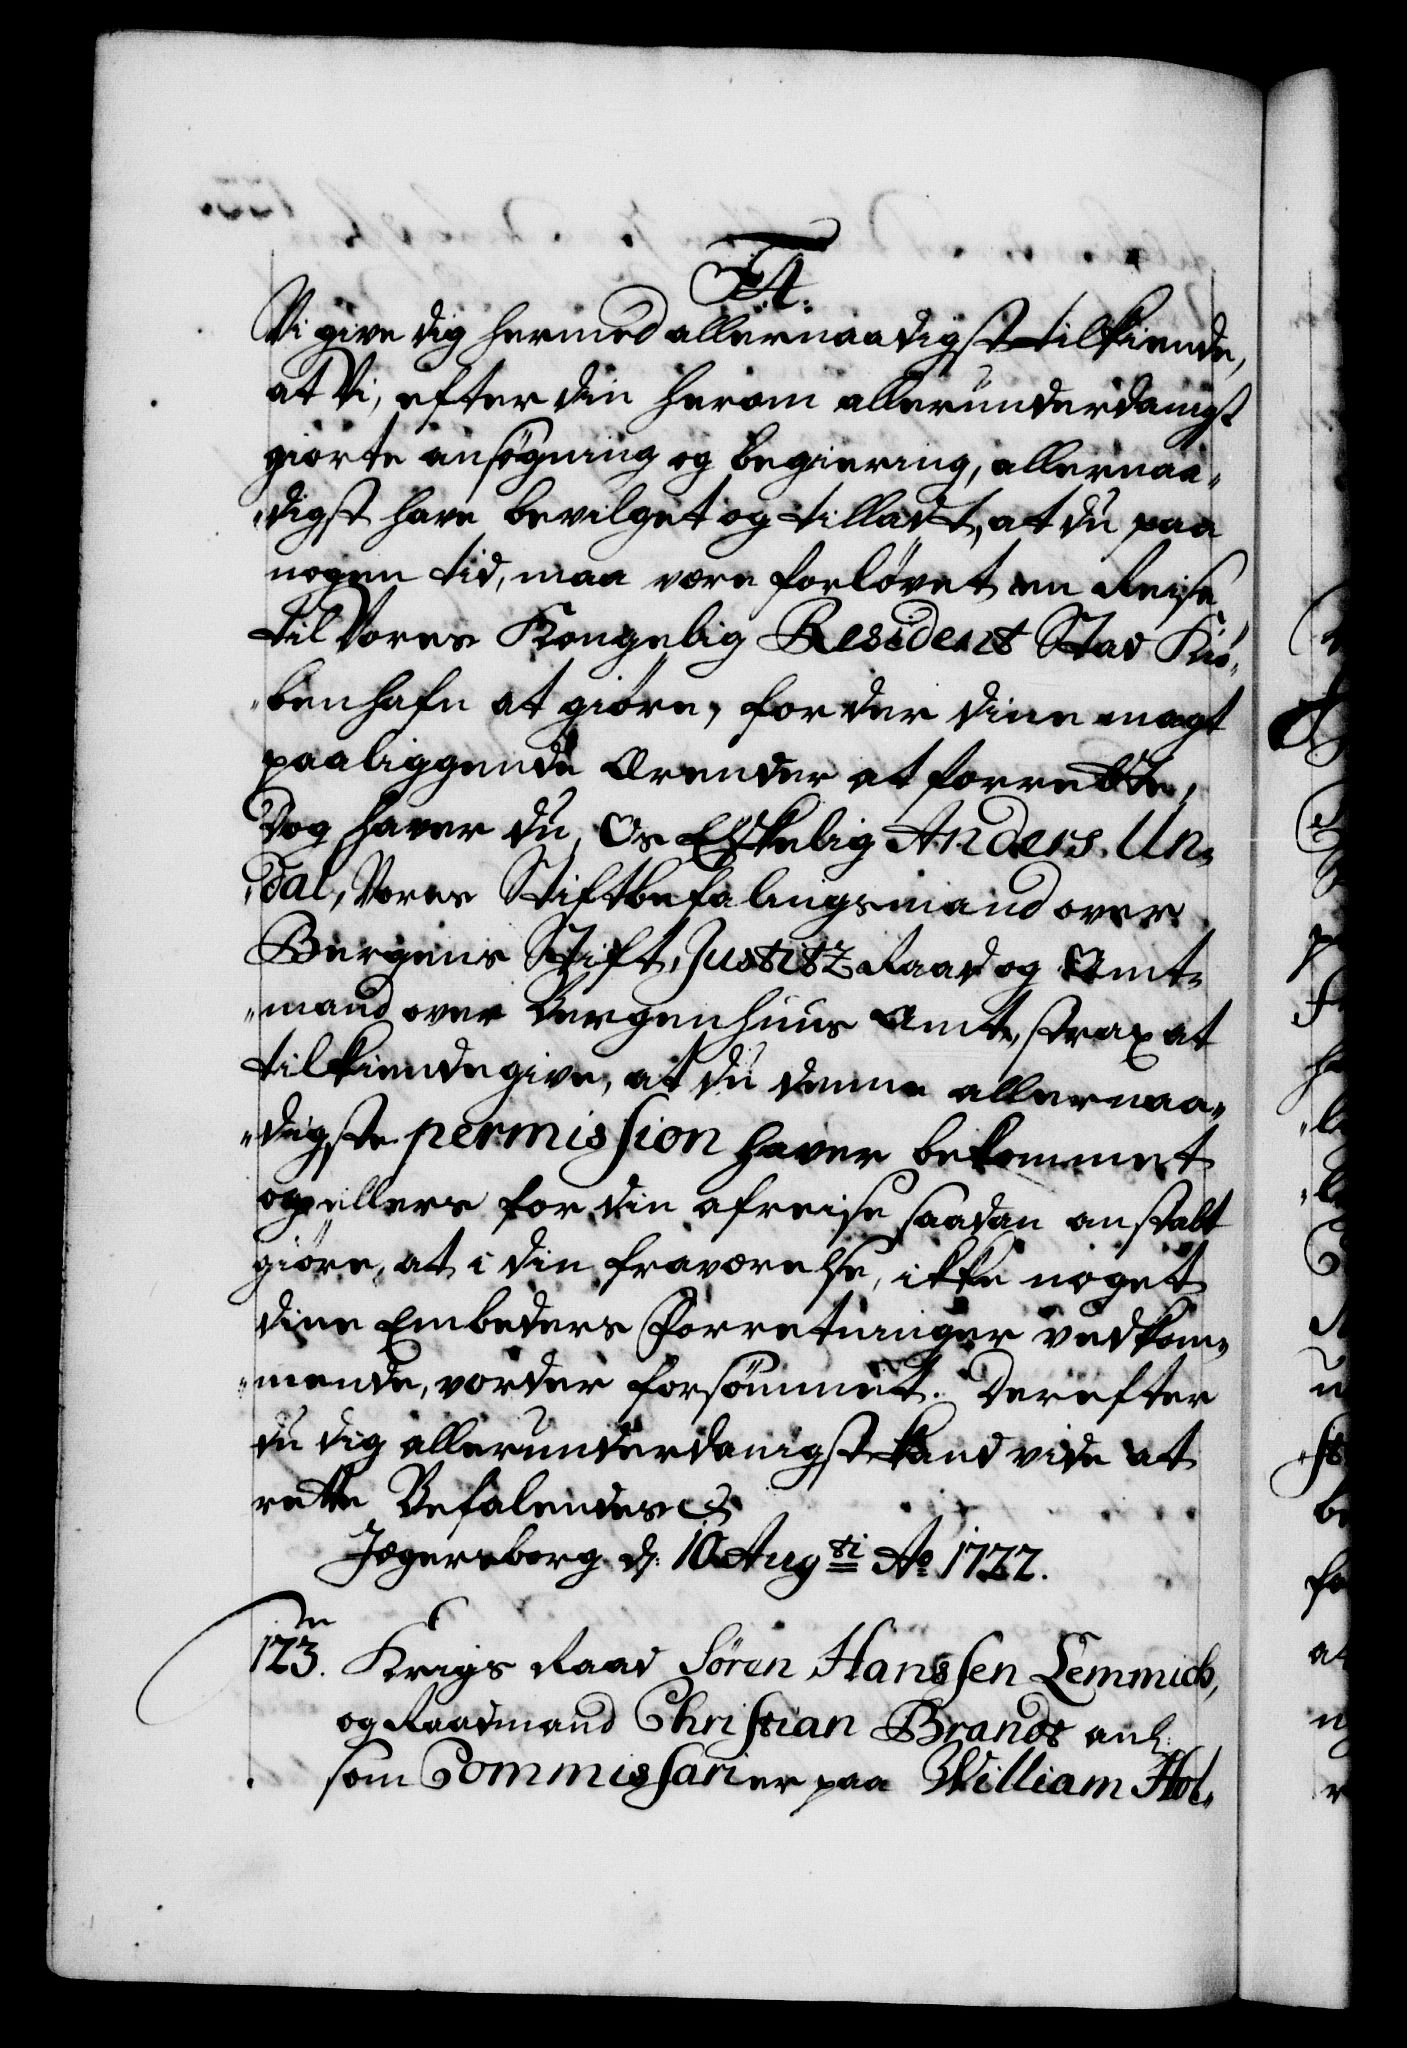 F4.
Vi give dig hermed allernaadigst tilkiende,
at Vi, efter din herom allerunderdanigst
giorte ansøgning og begiering, allernaa-
digst have bevilget og tilladt, at du paa
nogen tid, maa være forlovet en Reise
til Vores Kongelig Residents Stad Kiö-
benhafn at giöre, for der dine magt
paaliggende Ærender at forrette,
Dog haver du, Os Elskelig Anders Un-
dal, Vores Stiftbefalingsmand over
Bergens Stift, Justitz Raad og Amt-
mand over Bergenhuus Amt, strax at
tilkiendegive, at du denne allernaa-
digste permission haver bekommet
og ellers for din afreise saadan anstalt
giöre, at i din fraværelse, ikke noget
dine Embeders Forretninger vedkom-
mende, vorder forsömmet. Derefter
du dig allerunderdanigst kand vide at
rette Befalendes
Jægersborg d: 10 Augsti Ao 1722.
123. Krigs Raad Sören Hanssen Lemmich,
og Raadmand Christian Brandt anl:
som Commissarier paa William Hol-